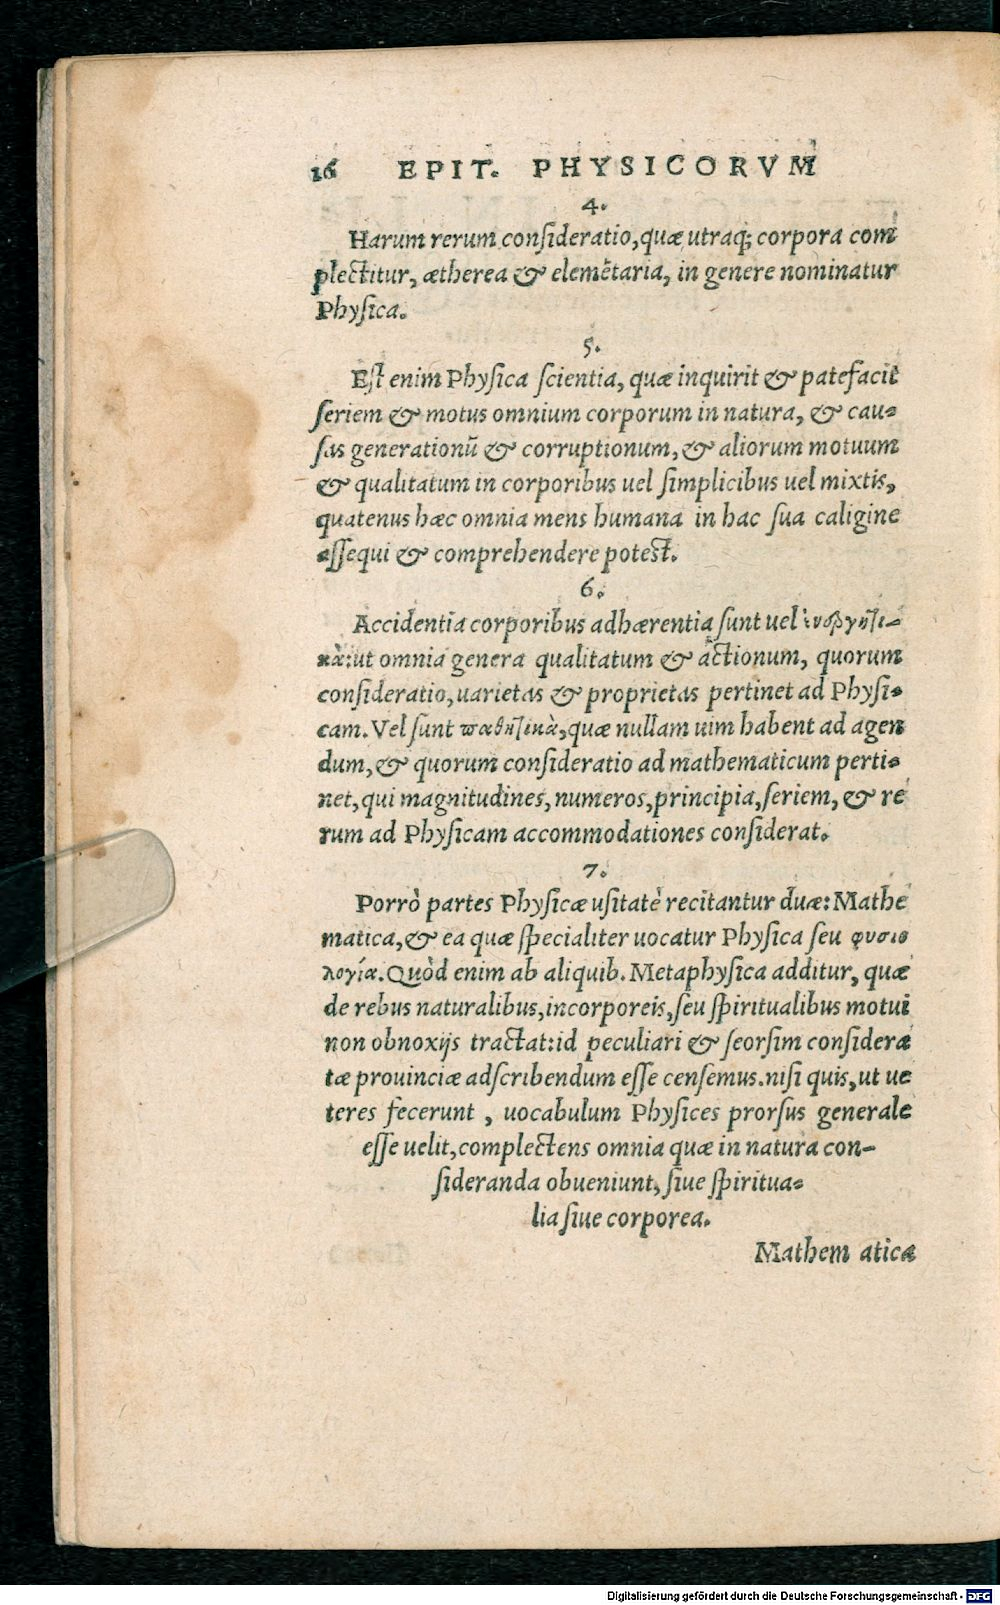 16 EPIT. PHYSICORVM
4.
Harum rerum consideratio, quæ utraq; corpora com
plectitur, ætherea & elemẽtaria, in genere nominatur
Physica.
5.
Est enim Physica scientia, quæ inquirit & patefacit
seriem & motus omnium corporum in natura, & cau-
sas generationũ & corruptionum, & aliorum motuum
& qualitatum in corporibus uel simplicibus uel mixtis,
quatenus hæc omnia mens humana in hac sua caligine
assequi & comprehendere potest.
6.
Accidentia corporibus adhærentia sunt uel ἐνεργητι-
κὰ: ut omnia genera qualitatum & actionum, quorum
consideratio, uarietas & proprietas pertinet ad Physi-
cam. Vel sunt παθητικὰ, quæ nullam uim habent ad agen
dum, & quorum consideratio ad mathematicum perti-
net, qui magnitudines, numeros, principia, seriem, & re
rum ad Physicam accommodationes considerat.
7.
Porrò partes Physicæ usitatè recitantur duæ: Mathe
matica, & ea quæ specialiter uocatur Physica seu φυσιο
λογία. Quòd enim ab aliquib. Metaphysica additur, quæ
de rebus naturalibus, incorporeis, seu spiritualibus motui
non obnoxijs tractat: id peculiari & seorsim considera
tæ prouinciæ adscribendum esse censemus. nisi quis, ut ue
teres fecerunt, uocabulum Physices prorsus generale
esse uelit, complectens omnia quæ in natura con-
sideranda obueniunt, siue spiritua-
lia siue corporea.
Mathem aticæ
Digitalisierung gefördert durch die Deutsche Forschungsgemeinschaft - DFG